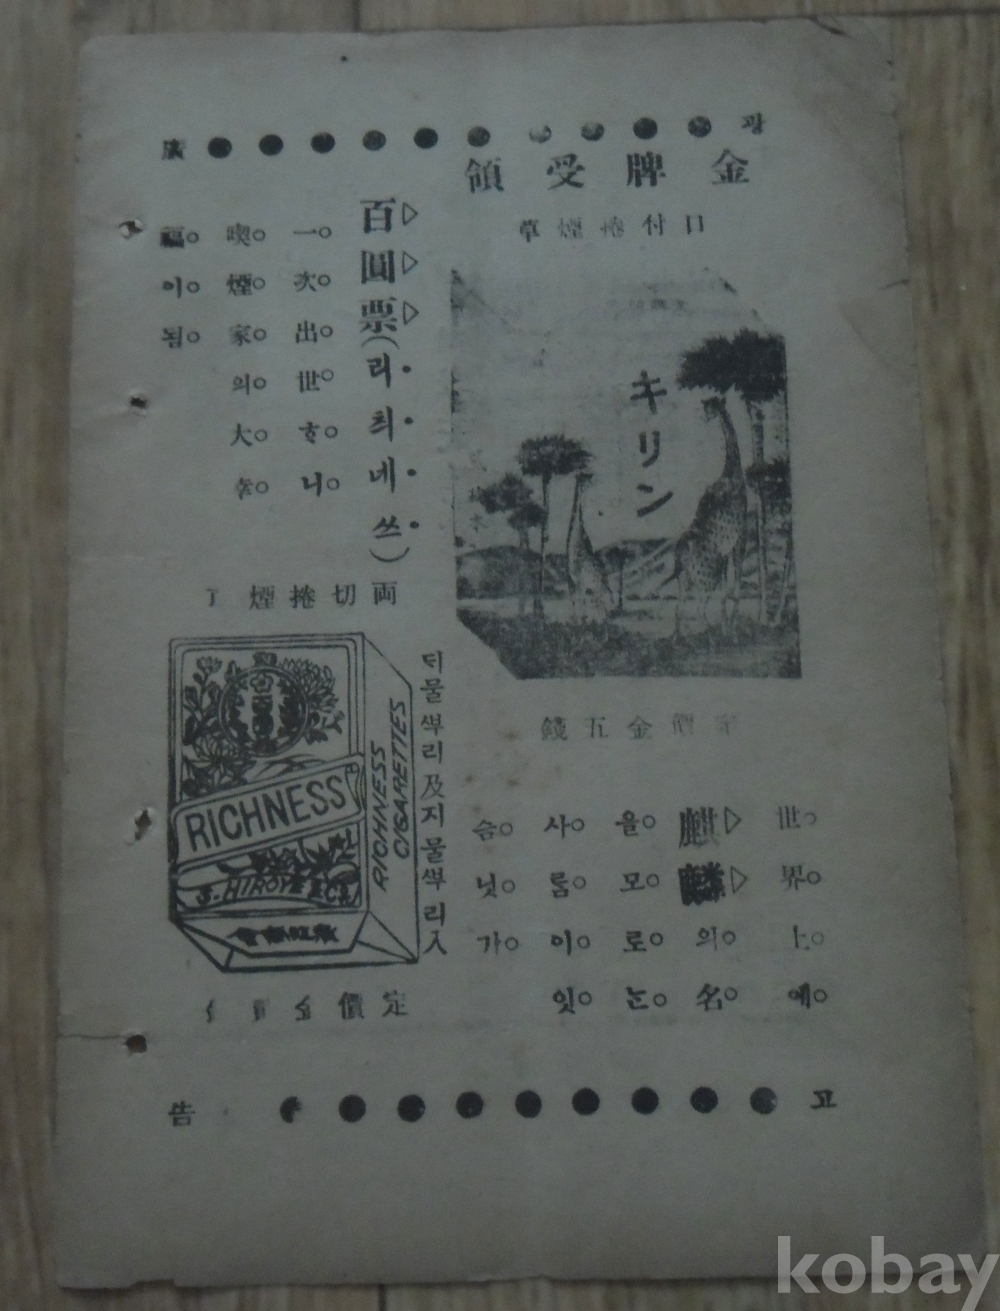 광
廣
金牌受領
口付捲煙草
キリン
金五錢
世界上에
麒麟의名
을모로는
사룸이잇
슴닛가
百圓票(리최네쓰)
一次出世하니
喫煙家의大幸
福이됨
両切捲煙
RICHNESS
S. HIROYE & Co.
RICHNESS
CIGARETTES
及지물뿌리入
定價金
고
告
kobay